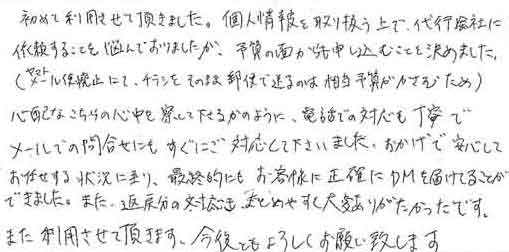 初めて利用させて頂きました。個人情報を取り扱う上で、代行会社に
依頼することも悩んでおりましたが、予算の面から申し込むことを決めました。
(ヤマトメール便廃止にて、チラシをそのまま郵便で送るのは相当予算がかさむため)
心配なこちらの心中を察して下さるかのように、電話での対応も丁寧で
メールでの問合せにもすぐにご対応して下さいました。おかげで安心して
お任せする状況に至り、最終的にもお客様に正確にDMを届けることが
できました。また、返戻分の対応も まとめやすく大変ありがたかったです。
また利用させて頂きます。今後ともよろしくお願い致します